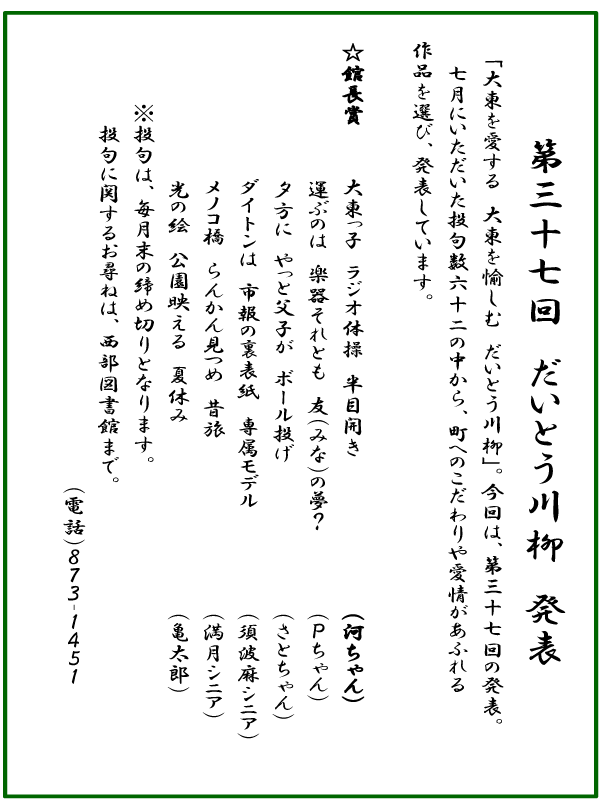 第三十七回　だいとう川柳　発表
「大東を愛する　大東を愉しむ　だいとう川柳」。今回は、第三十七回の発表。
七月にいただいた投句数六十二の中から、町へのこだわりや愛情があふれる
作品を選び、発表しています。
☆館長賞　大東っ子　ラジオ体操　半目開き　(河ちゃん)
運ぶのは　楽器それとも　友(みな)の夢？　(Pちゃん)
夕方に　やっと父子が　ボール投げ　(さとちゃん)
ダイトンは　市報の裏表紙　専属モデル　(須波麻シニア)
メノコ橋　らんかん見つめ　昔旅　(満月シニア)
光の絵　公園映える　夏休み　(亀太郎)
※投句は、毎月末の締め切りとなります。
投句に関するお尋ねは、西部図書館まで。
(電話)873-1451